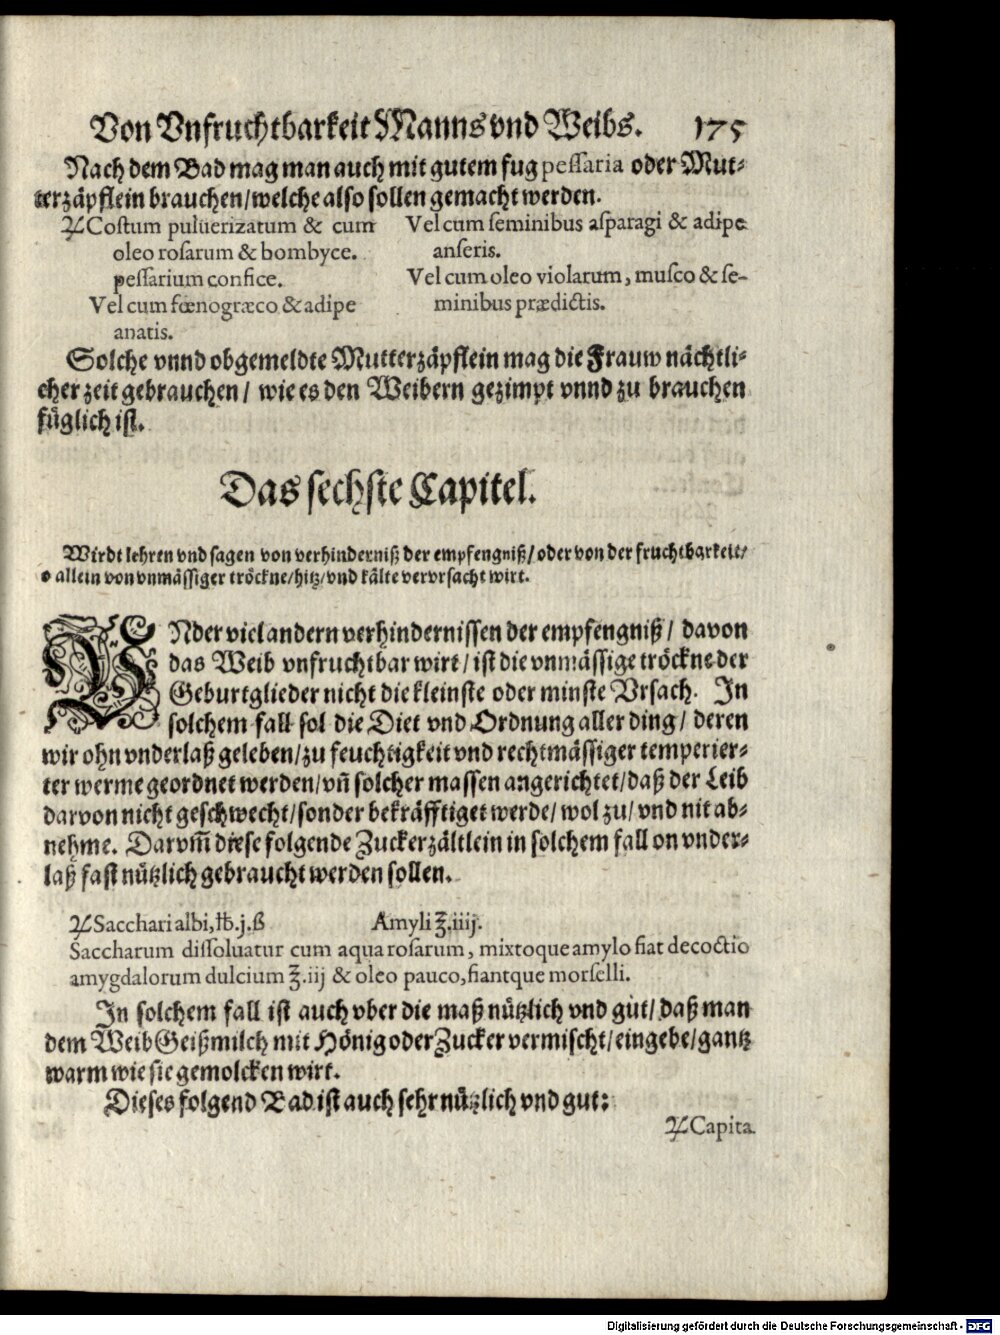 Von Vnfruchtbarkeit Manns vnd Weibs. 175
Nach dem Bad mag man auch mit gutem fug pessaria oder Mut-
terzäpflein brauchen/welche also sollen gemacht werden.
℞Costum puluerizatum & cum
oleo rosarum & bombyce.
pessarium confice.
Vel cum fœnogræco & adipe
anatis.
Vel cum seminibus asparagi & adipe
anseris.
Vel cum oleo violarum, musco & se-
minibus prædictis.
Solche vnnd obgemeldte Mutterzäpflein mag die Frauw nächtli-
cher zeit gebrauchen/ wie es den Weibern gezimpt vnnd zu brauchen
füglich ist.
Das sechste Capitel.
Wirdt lehren vnd sagen von verhinderniß der empfengniß/oder von der fruchtbarkeit/
o allein von vnmässiger tröckne/hitz/vnd kälte vervrsacht wirt.
VNder viel andern verhindernissen der empfengniß/ davon
das Weib vnfruchtbar wirt/ist die vnmässige tröckne der
Geburtglieder nicht die kleinste oder minste Vrsach. In
solchem fall sol die Diet vnd Ordnung aller ding/ deren
wir ohn vnderlaß geleben/zu feuchtigkeit vnd rechtmässiger temperier-
ter werme geordnet werden/vñ solcher massen angerichtet/daß der Leib
darvon nicht geschwecht/sonder bekräfftiget werde/ wol zu/ vnd nit ab-
nehme. Darvm̃ diese folgende Zuckerzältlein in solchem fall on vnder-
laß fast nützlich gebraucht werden sollen.
℞Sacchari albi, ℔.j.ß Amyli ℥.iiij.
Saccharum dissoluatur cum aqua rosarum, mixtoque amylo fiat decoctio
amygdalorum dulcium ℥.iij & oleo pauco, fiantque morselli.
In solchem fall ist auch vber die maß nützlich vnd gut/ daß man
dem Weib Geißmilch mit Hönig oder Zucker vermischt/eingebe/gantz
warm wie sie gemolcken wirt.
Dieses folgend Bad ist auch sehr nützlich vnd gut:
℞Capita
Digitalisierung gefördert durch die Deutsche Forschungsgemeinschaft - DFG